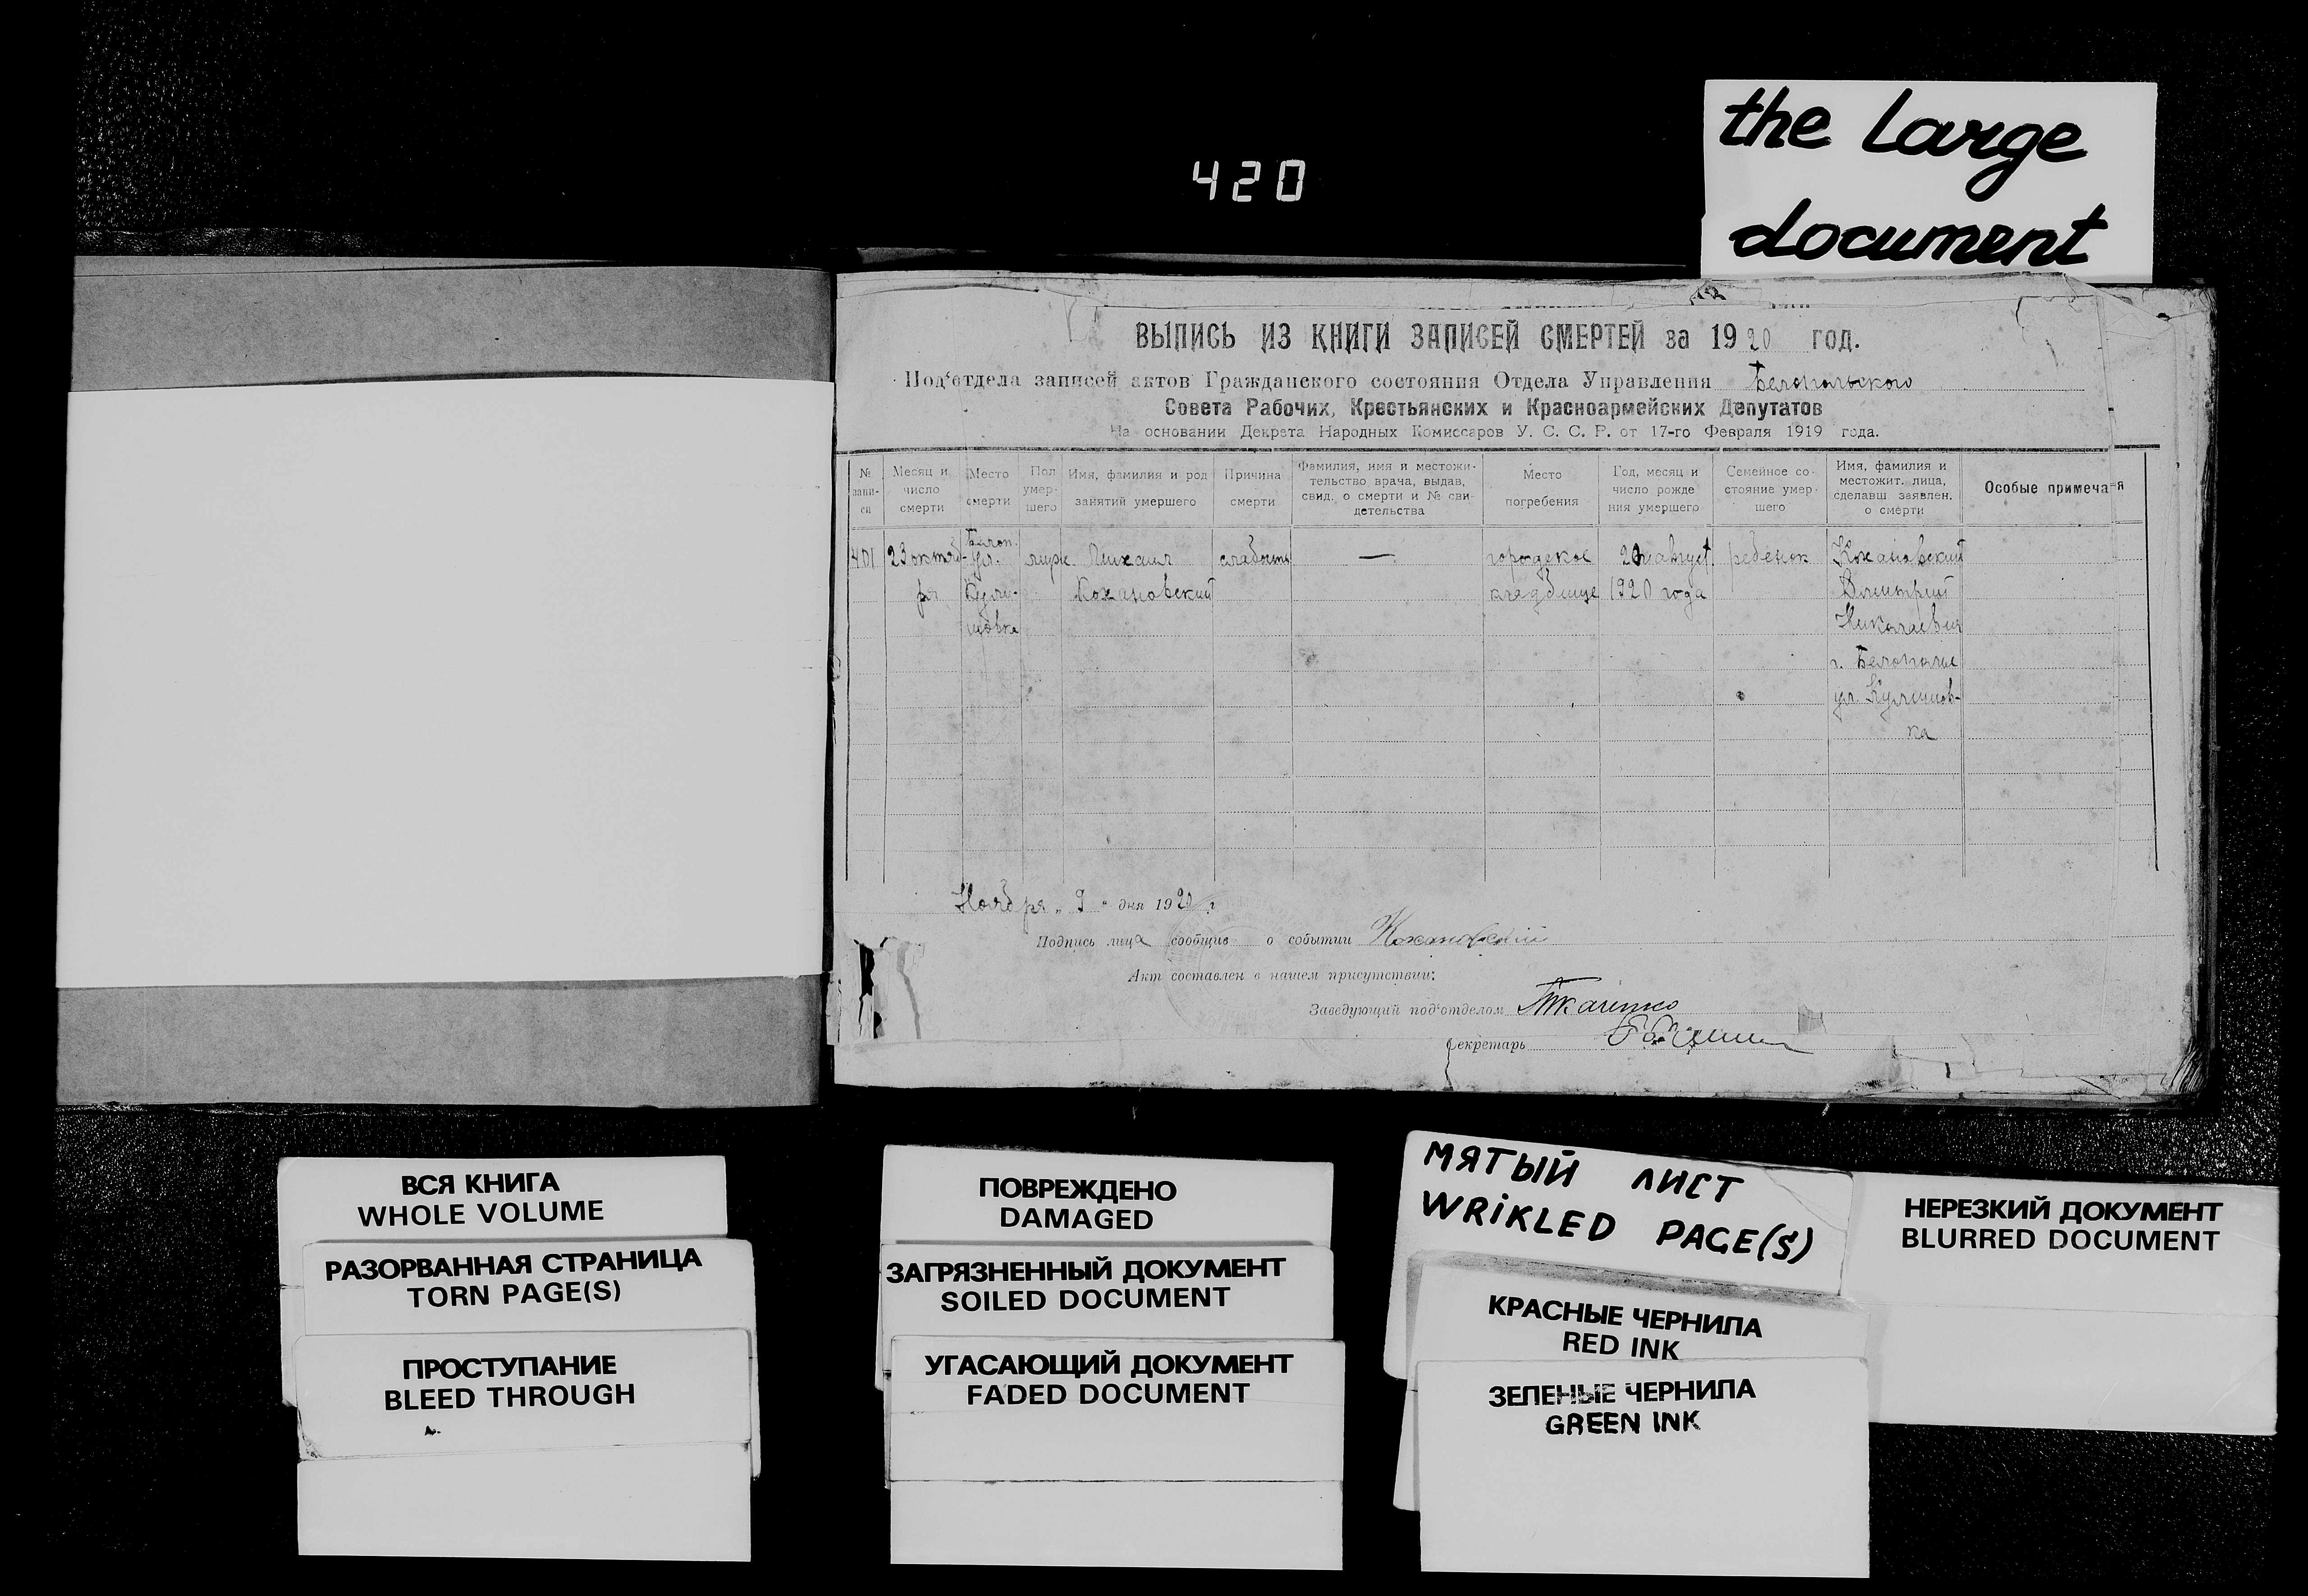 the large
document
420
ВЫПИСЬ ИЗ КНИГИ ЗАПИСЕЙ СМЕРТЕЙ за 1920 год.
Под'отдела записей актов Гражданского состояния Отдела Управления Белопольского
Совета Рабочих, Крестьянских и Красноармейских Депутатов
На основании Декрета Народных Комиссаров У. С. С. Р. от 17-го Февраля 1919 года.
№ запи- си
Месяц и число смерти
Место смерти
Пол умер- шего
Имя, фамилия и род занятий умершего
Причина смерти
Фамилия, имя и местожи- тельство врача, выдав, свид. о смерти и № сви- детельства
Место погребения
Год, месяц и число рожде ния умершего
Семейное со- стояние умер- шего
Имя, фамилия и местожит. лица, сделавш заявлен. о смерти
Особые примеча я
401
23 октяб-
ря
Белоп.
ул.
Михаил
Кохановский
слабость
—
городское
кладбище
август
1920 года
ребенок
Кохановский
Дмитрий
Николаевич
г. Белополье
ул.
ка
Ноября „ 9 " дня 1920 г
Подпись лица сообщив о событии Кохановский
Акт составлен в нашем присутствии:
Заведующий под'отделом Ткаченко
Секретарь
ВСЯ КНИГА
WHOLE VOLUME
РАЗОРВАННАЯ СТРАНИЦА
TORN PAGE(S)
ПРОСТУПАНИЕ
BLEED THROUGH
ПОВРЕЖДЕНО
DAMAGED
ЗАГРЯЗНЕННЫЙ ДОКУМЕНТ
SOILED DOCUMENT
УГАСАЮЩИЙ ДОКУМЕНТ
FADED DOCUMENT
МЯТЫЙ ЛИСТ
WRIKLED PAGE(S)
КРАСНЫЕ ЧЕРНИЛА
RED INK
ЗЕЛЕНЫЕ ЧЕРНИЛА
GREEN INK
НЕРЕЗКИЙ ДОКУМЕНТ
BLURRED DOCUMENT